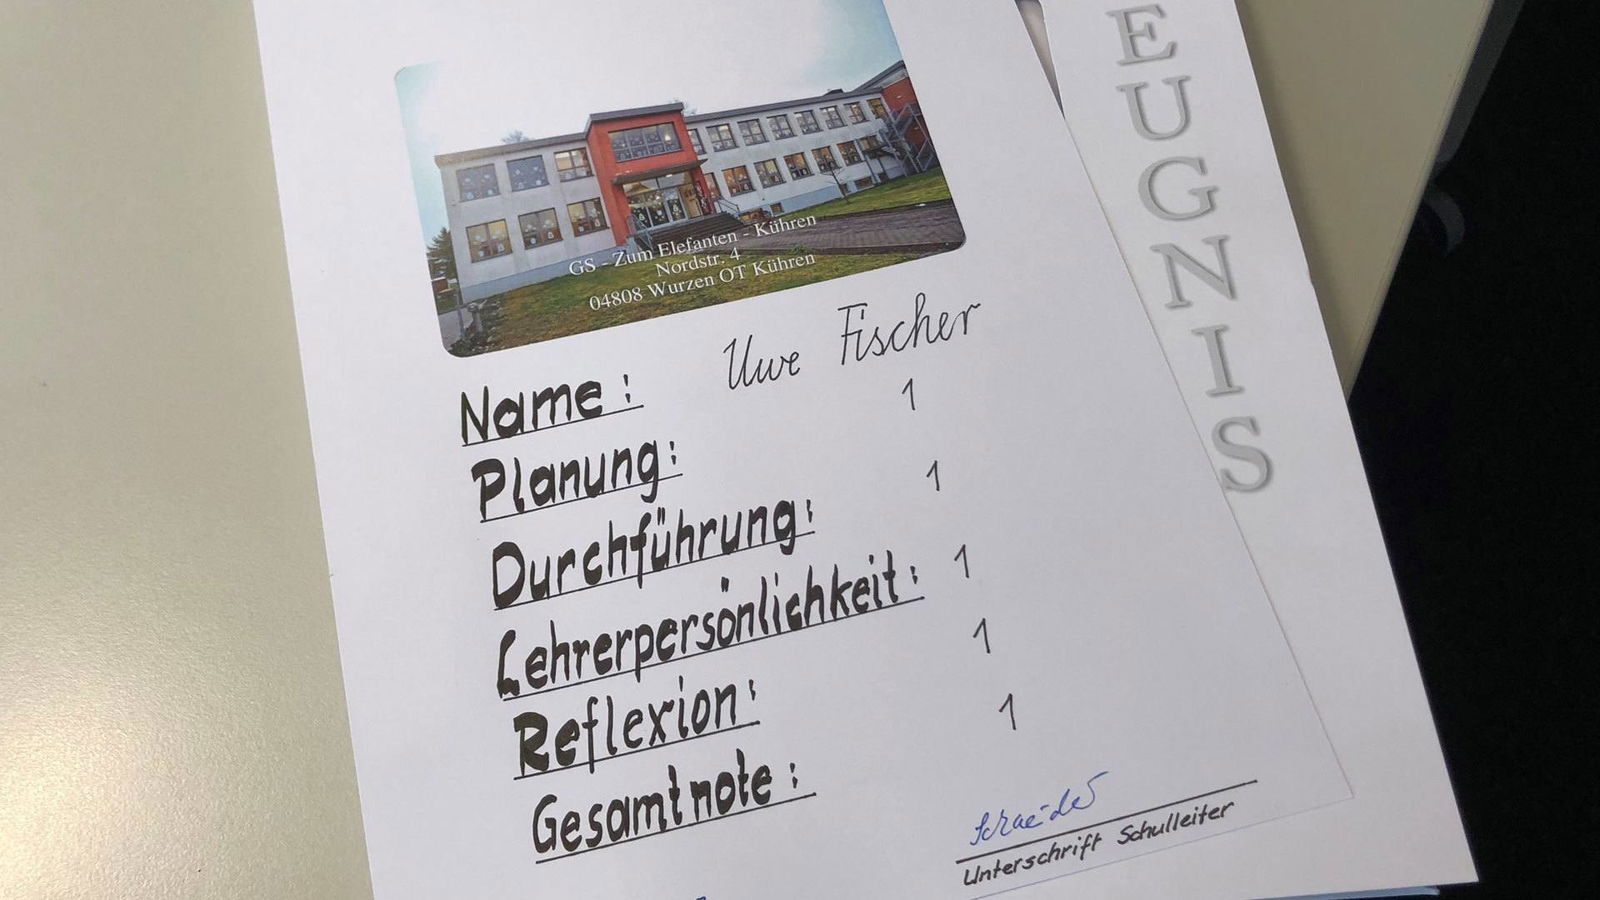 EUGNIS
GS - Zum Elefanten - Kühren
Nordstr. 4
04808 Wurzen OT Kühren
Name: Uwe Fischer
Planung: 1
Durchführung: 1
Lehrerpersönlichkeit: 1
Reflexion: 1
Gesamtnote: 1
Unterschrift Schulleiter